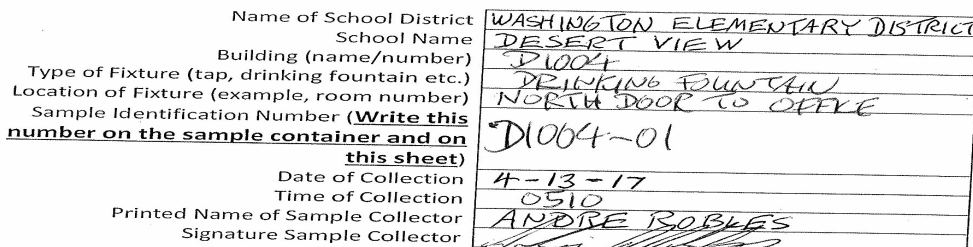 Name of School District WASHINGTON ELEMENTARY DISTRICT
School Name DESERT VIEW
Building (name/number) D1004
Type of Fixture (tap, drinking fountain etc.) DRINKING FOUNTAIN
Location of Fixture (example, room number) NORTH DOOR TO OFFICE
Sample Identification Number (Write this
number on the sample container and on
this sheet) D1004-01
Date of Collection 4-13-17
Time of Collection 0510
Printed Name of Sample Collector ANDRE ROBLES
Signature Sample Collector